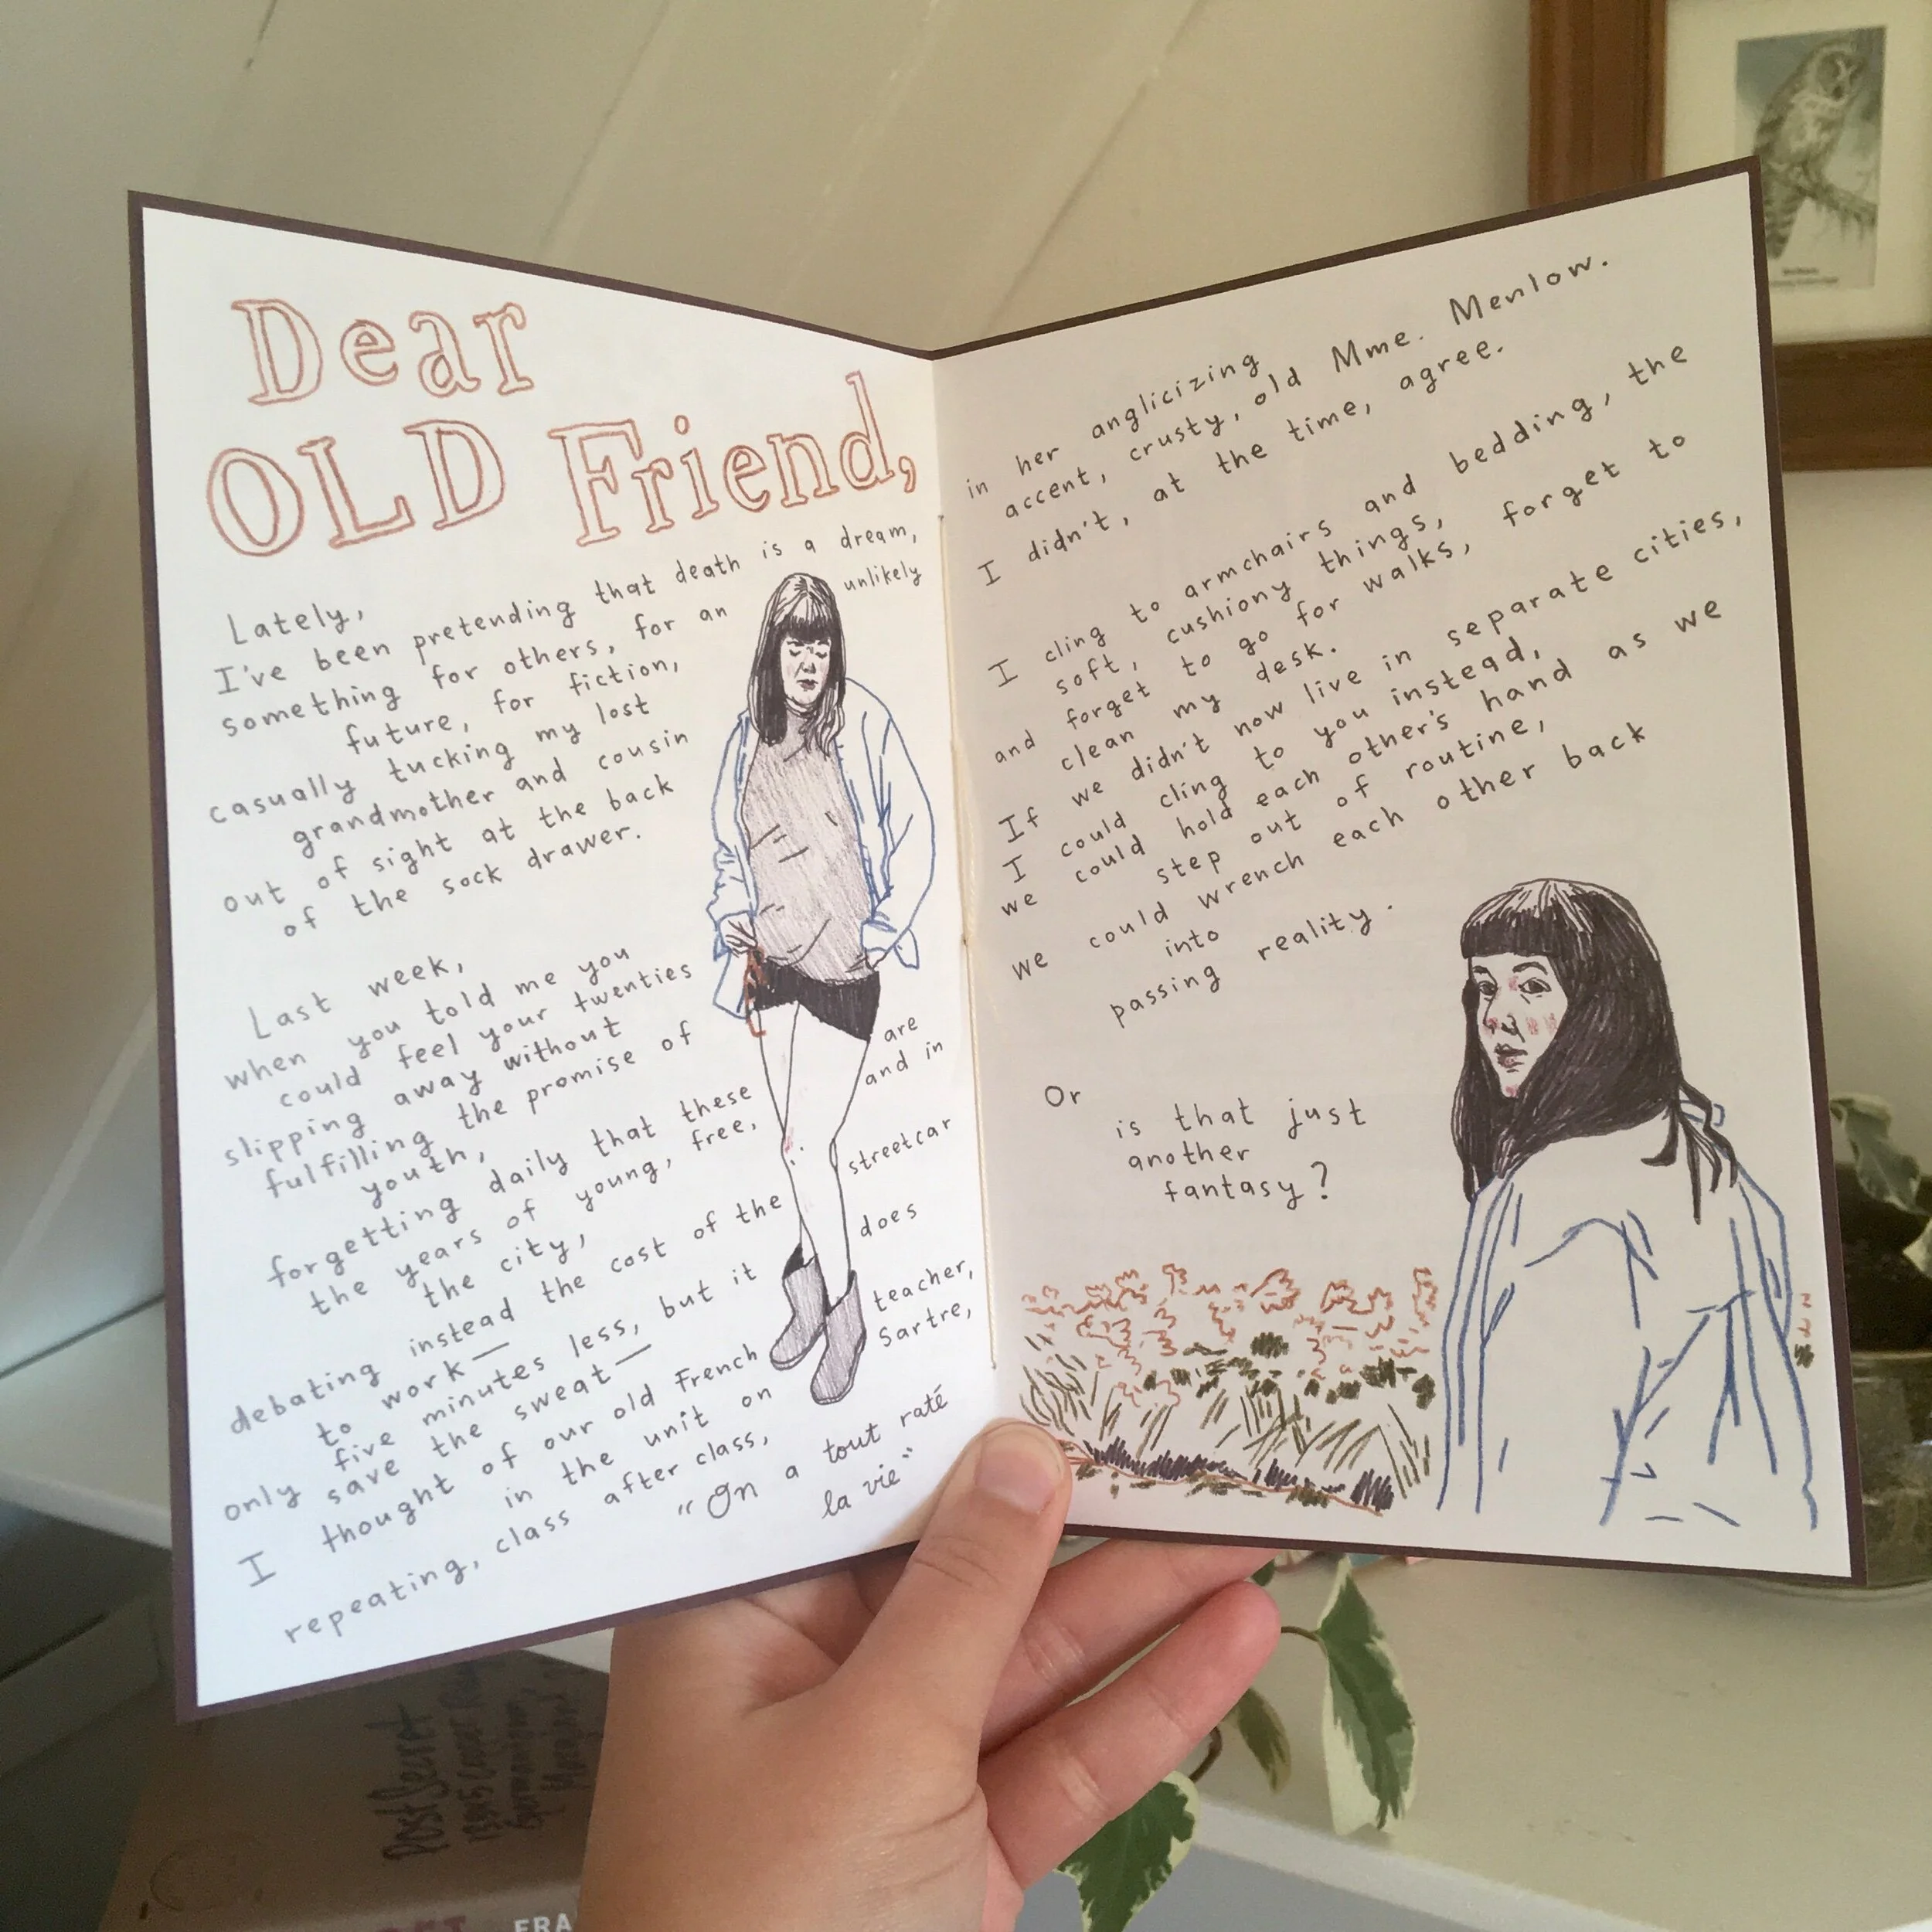 Dear
OLD Friend,
Lately,
I've been pretending that death is a dream,
something for others, for an unlikely
future, for fiction,
casually tucking my lost
grandmother and cousin
out of sight at the back
of the sock drawer.
Last week,
when you told me you
could feel your twenties
slipping away without
fulfilling the promise of
youth,
forgetting daily that these are
the years of young, free, and in
the city,
debating instead the cost of the streetcar
to work—
only five minutes less, but it does
save the sweat—
I thought of our old French teacher,
in the unit on Sartre,
repeating, class after class,
"On a tout raté
la vie"
in her anglicizing
accent, crusty, old Mme. Menlow.
I didn't, at the time, agree.
I cling to armchairs and bedding, the
soft, cushiony things,
and forget to go for walks, forget to
clean my desk.
If we didn't now live in separate cities,
I could cling to you instead,
we could hold each other's hand as we
step out of routine,
we could wrench each other back
into
passing reality.
Or
is that just
another
fantasy?
PostSecret
13345 Copper
Germantown,
FRA